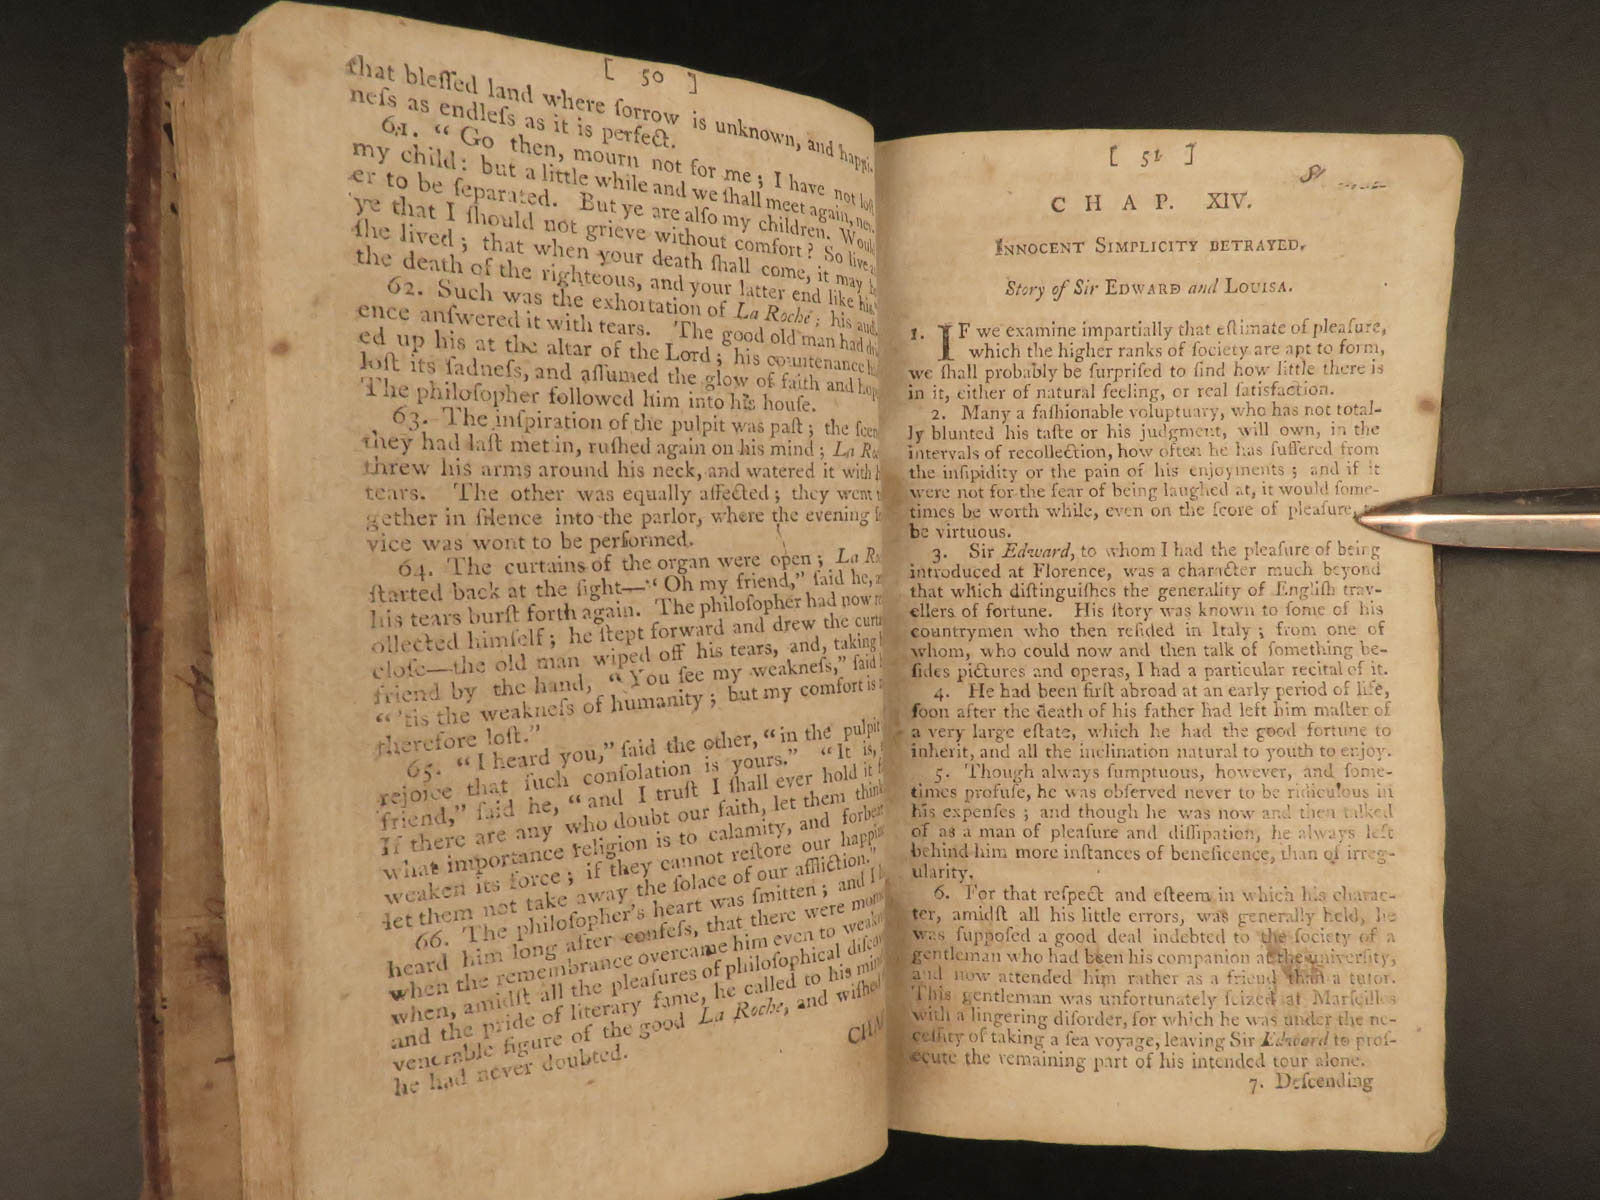 [ 50 ]
that bleſſed land where ſorrow is unknown, and happi-
neſs as endleſs as it is perfect.
61. "Go then, mourn not for me; I have not loſt
my child: but a little while and we ſhall meet again, nev-
er to be ſeparated. But ye are alſo my children. Would
ye that I ſhould not grieve without comfort? So live as
ſhe lived; that when your death ſhall come, it may be
the death of the righteous, and your latter end like his."
62. Such was the exhortation of La Roche; his audi-
ence anſwered it with tears. The good old man had
ed up his at the altar of the Lord; his countenance
loſt its ſadneſs, and aſſumed the glow of faith and hope
The philoſopher followed him into his houſe.
63. The inſpiration of the pulpit was paſt; the
they had laſt met in, ruſhed again on his mind; La
threw his arms around his neck, and watered it with
tears. The other was equally affected; they went
gether in ſilence into the parlor, where the evening
vice was wont to be performed.
64. The curtains of the organ were open; La
ſtarted back at the ſight—"Oh my friend," ſaid he,
his tears burſt forth again. The philoſopher had now
ollected himſelf; he ſtept forward and drew the
cloſe—the old man wiped off his tears, and, taking
friend by the hand, "You ſee my weakneſs," ſaid
"'tis the weakneſs of humanity; but my comfort is
therefore loſt."
65. "I heard you," ſaid the other, "in the pulpit
rejoice that ſuch conſolation is yours." "It is,
friend," ſaid he, "and I truſt I ſhall ever hold it
If there are any who doubt our faith, let them think
what importance religion is to calamity, and
weaken its force; if they cannot reſtore our
let them not take away the ſolace of our affliction."
66. The philoſopher's heart was ſmitten; and I
heard him long after confeſs, that there were
when the remembrance overcame him even to
when, amidſt all the pleaſures of philoſophical
and the pride of literary fame, he called to his mind
venerable figure of the good La Roche, and wiſhed
he had never doubted.
[ 51 ]
CHAP. XIV.
INNOCENT SIMPLICITY BETRAYED.
Story of Sir EDWARD and LOUISA.
1. IF we examine impartially that eſtimate of pleaſure,
which the higher ranks of ſociety are apt to form,
we ſhall probably be ſurpriſed to find how little there is
in it, either of natural feeling, or real ſatisfaction.
2. Many a faſhionable voluptuary, who has not total-
ly blunted his taſte or his judgment, will own, in the
intervals of recollection, how often he has ſuffered from
the inſipidity or the pain of his enjoyments; and if it
were not for the fear of being laughed at, it would ſome-
times be worth while, even on the ſcore of pleaſure,
be virtuous.
3. Sir Edward, to whom I had the pleaſure of being
introduced at Florence, was a character much beyond
that which diſtinguiſhes the generality of Engliſh trav-
ellers of fortune. His ſtory was known to ſome of his
countrymen who then reſided in Italy; from one of
whom, who could now and then talk of ſomething be-
ſides pictures and operas, I had a particular recital of it.
4. He had been firſt abroad at an early period of life,
ſoon after the death of his father had left him maſter of
a very large eſtate, which he had the good fortune to
inherit, and all the inclination natural to youth to enjoy.
5. Though always ſumptuous, however, and ſome-
times profuſe, he was obſerved never to be ridiculous in
his expenſes; and though he was now and then talked
of as a man of pleaſure and diſſipation, he always left
behind him more inſtances of beneficence, than of irreg-
ularity.
6. For that reſpect and eſteem in which his charac-
ter, amidſt all his little errors, was generally held, he
was ſuppoſed a good deal indebted to the ſociety of a
gentleman who had been his companion at the univerſity,
and now attended him rather as a friend than a tutor.
This gentleman was unfortunately ſeized at Marſeilles
with a lingering diſorder, for which he was under the ne-
ceſſity of taking a ſea voyage, leaving Sir Edward to proſ-
ecute the remaining part of his intended tour alone.
7. Deſcending